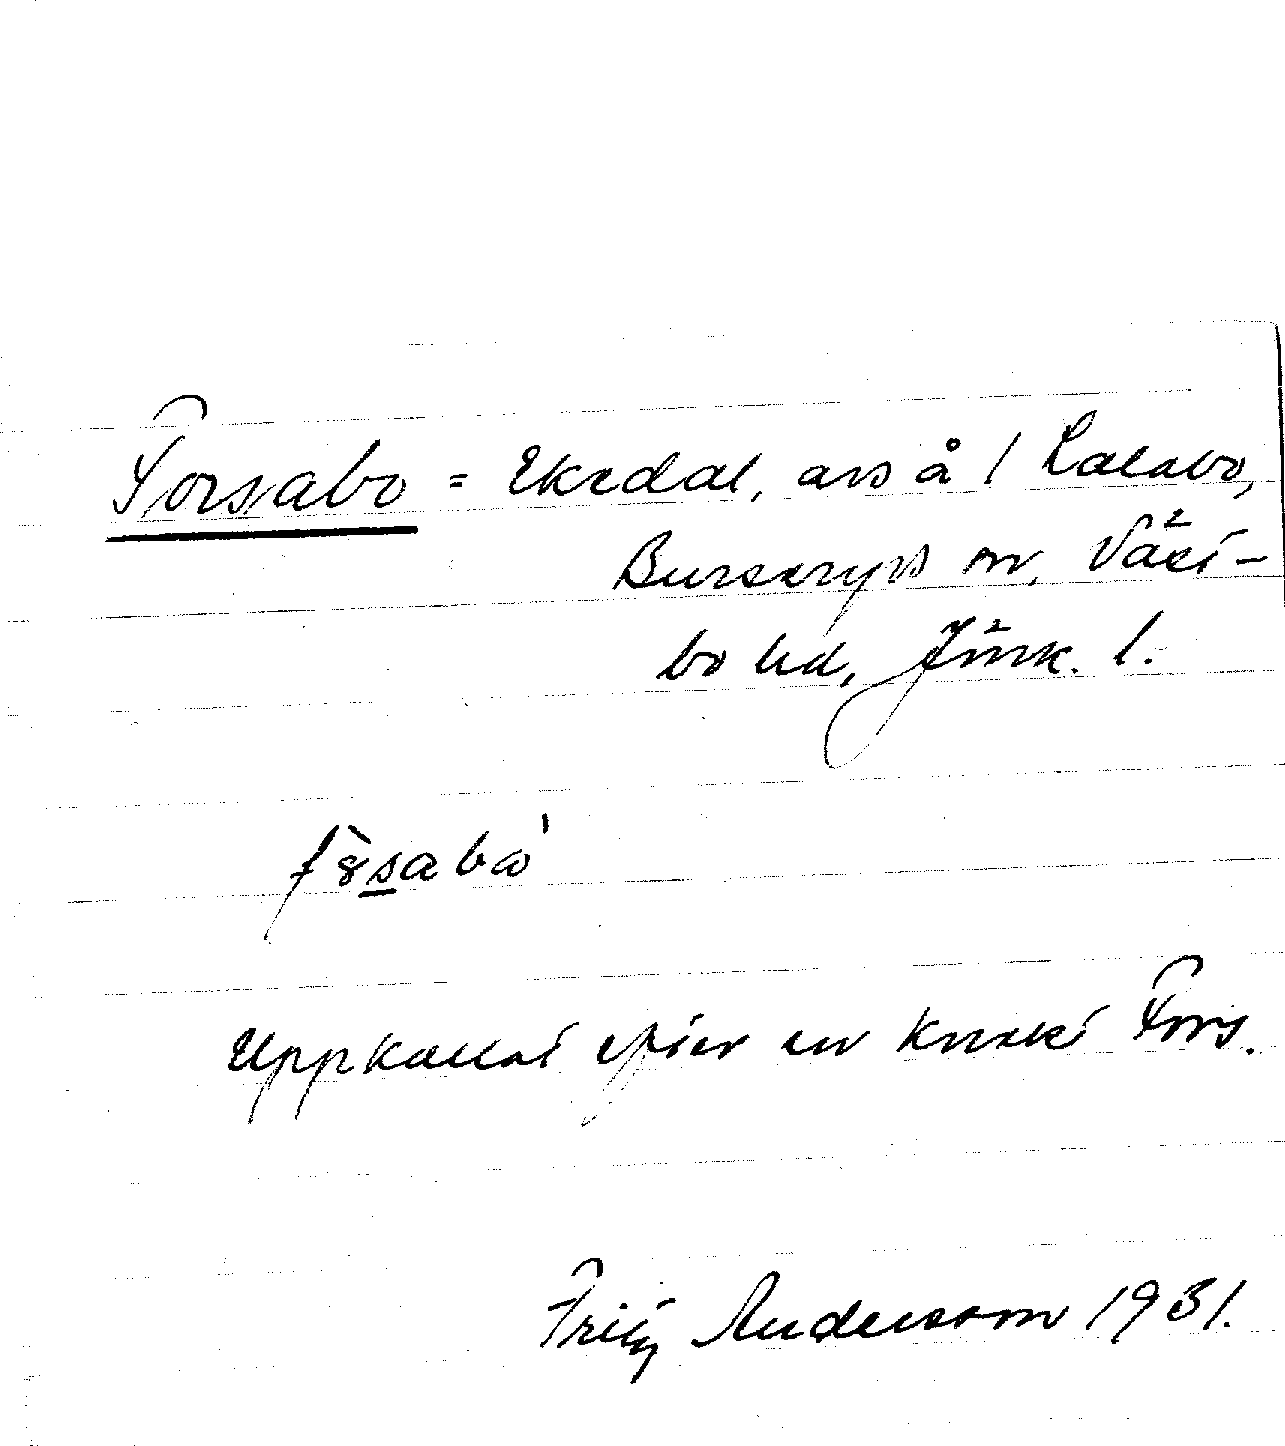 Forsabo = Ekedal, avs å 1 Lalabo,
Burseryds sn, Västbo hd, Jönk. l.
Uppkallat efter en knekt Fors.
Fritz Anderson 1931.